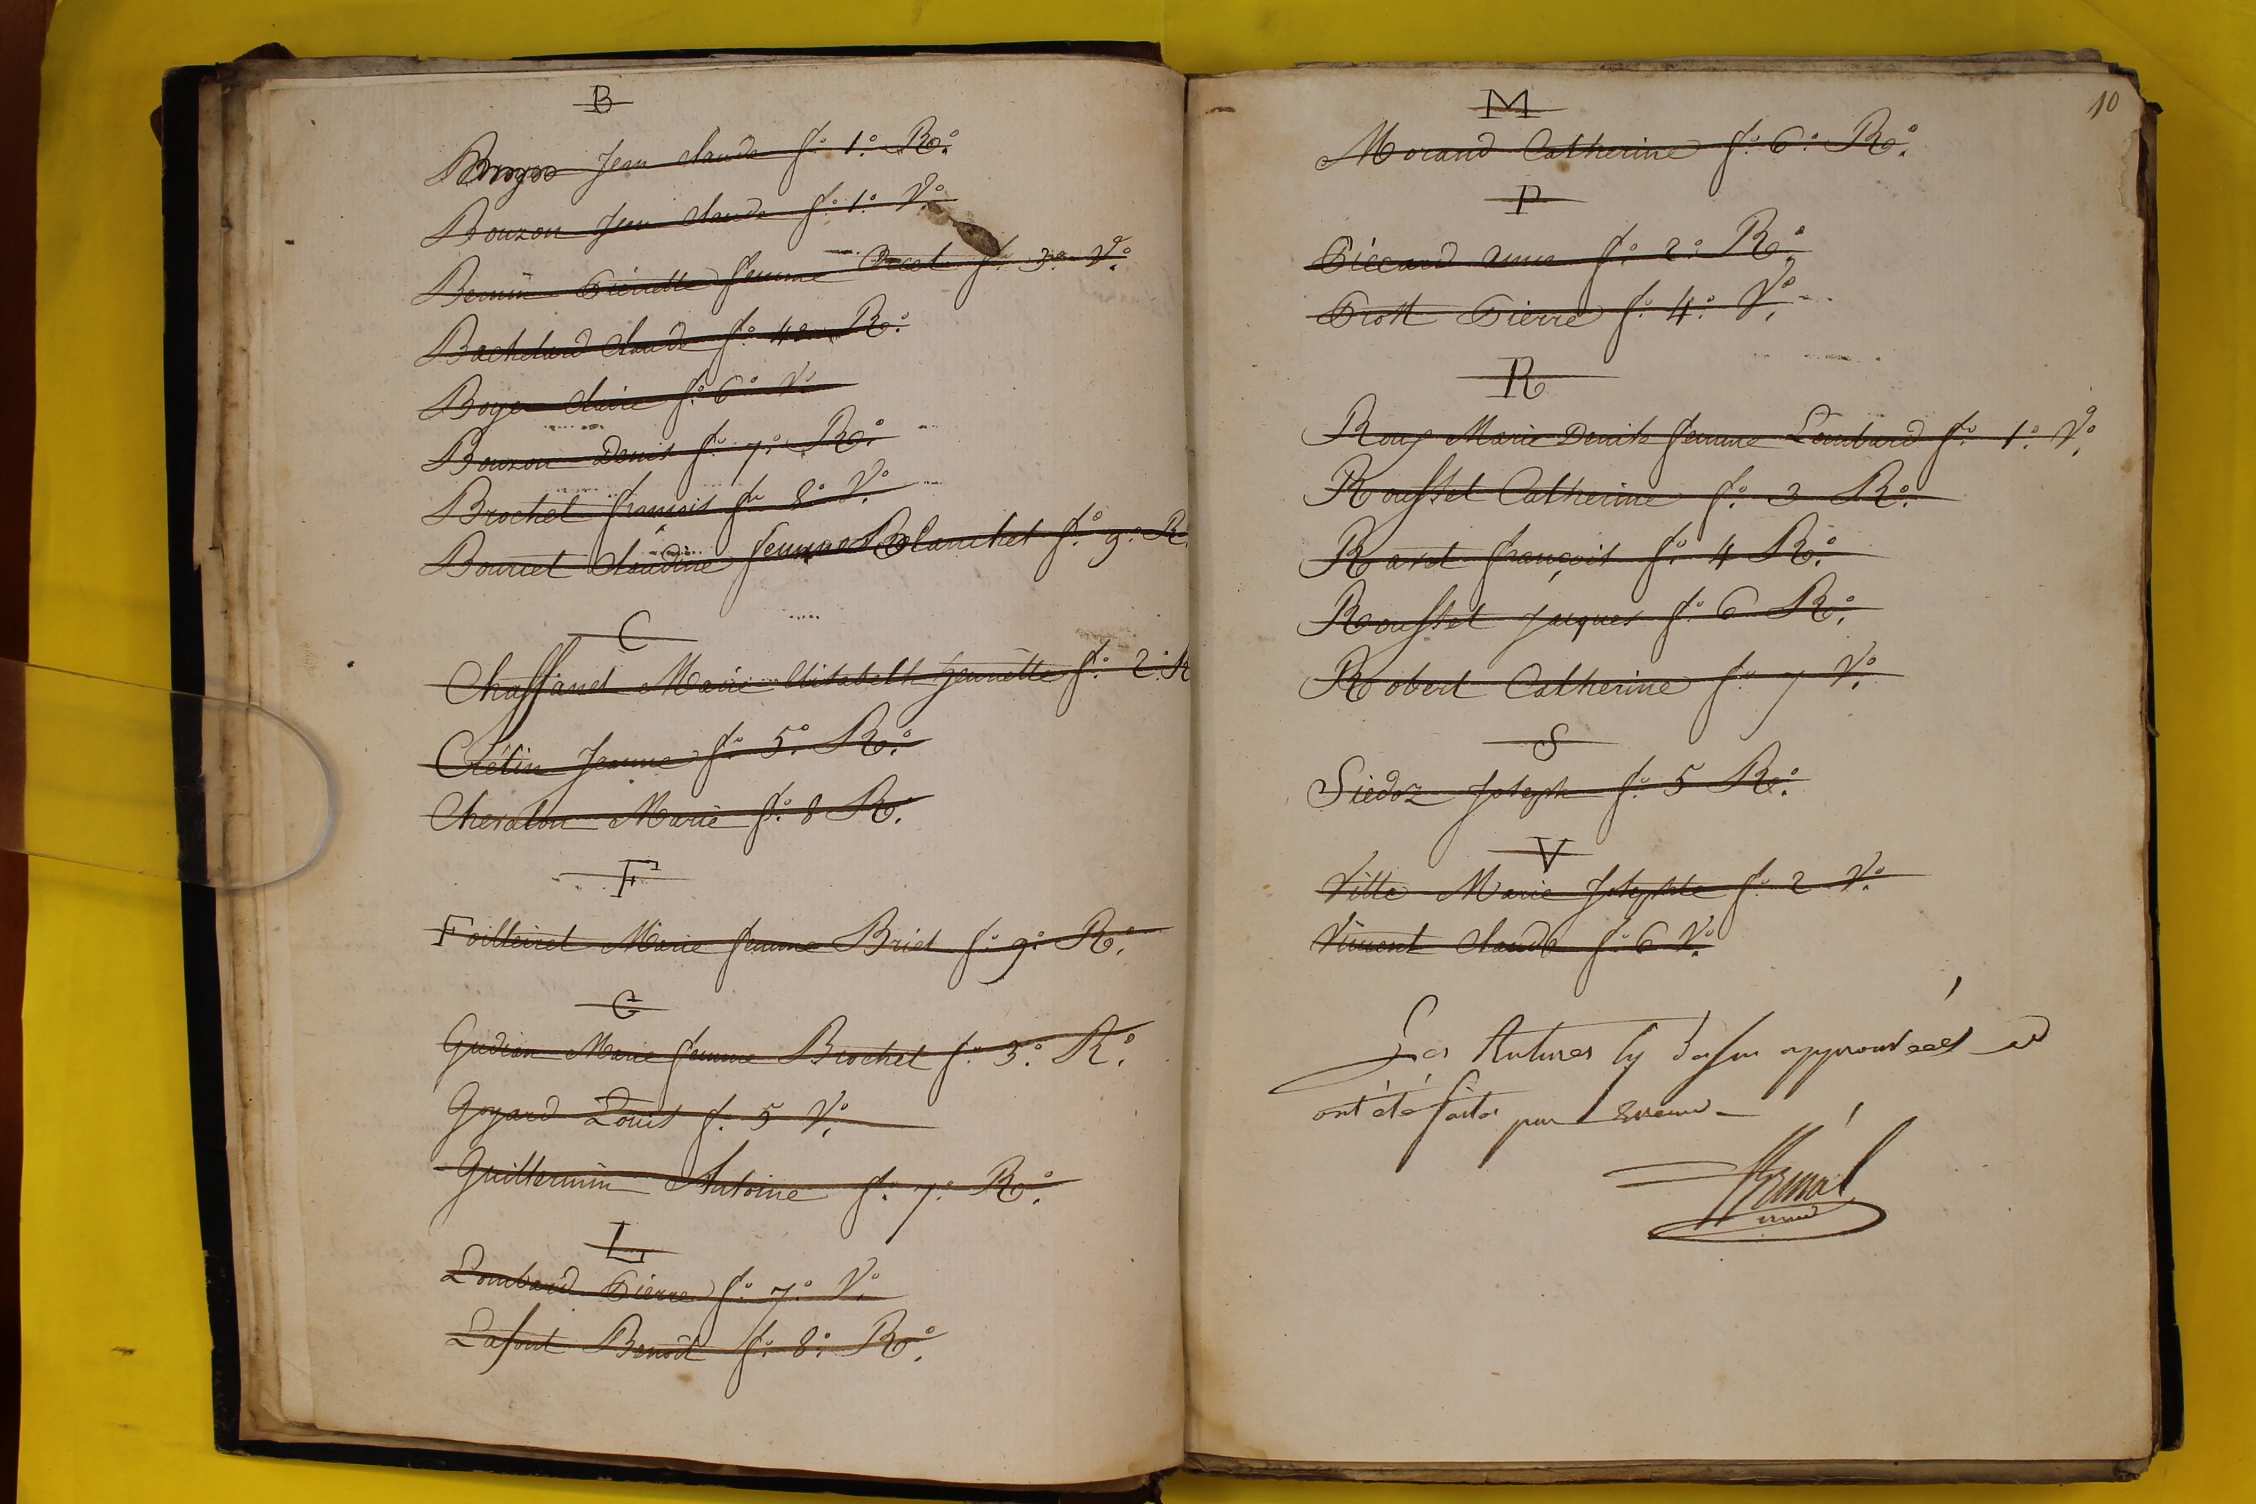 B
Boyer Jean Claude f.° 1.° R.°
Bouzon Jean Claude f.° 1.° V.°
Bernin Pierrette femme f.° 3.° V.°
Bachelard Claude f.° 4 R.°
Boyer Claire f.° 6.° V.°
Bouzon Denis f.° 7.° R.°
Brochet françois f.° 8.° V.°
Bourcet Claudine femme Blanchet f.° 9.° R.
C
Chassanet Marie Elisabeth henriette f.° 2.° R
Crétin Jeanne f.° 5.° R.°
Chevalon Marie f.° 8 R.°
F
Foilleret Marie femme Briet f.° 9.° R.°
G
Gudian Marie femme Brochet f.° 3.° R.°
Goyard Louis f.° 5 V.°
Guillermin Antoine f.° 7.° R.°
L
Lombard Pierre f.° 7.° V.°
Lafont Benoît f.° 8.° R.°
10
M
Morand Catherine f.° 6.° R.°
P
Piccard anne f.° 2.° R.°
Prott Pierre f.° 4.° V.°
R
Roux Marie Denise femme Lombard f.° 1.° V.°
Rousset Catherine f.° 3 R.°
Ravet françois f.° 4 R.°
Rousset Jacques f.° 6 R.°
Robert Catherine f.° 7 V.°
S
Siedoz Joseph f.° 5 R.°
V
Vitte Marie Josephte f.° 2 V.°
Vincent Claude f.° 6 V.°
Les Ratures cy dessus approuvées
ont été faites par Erreur